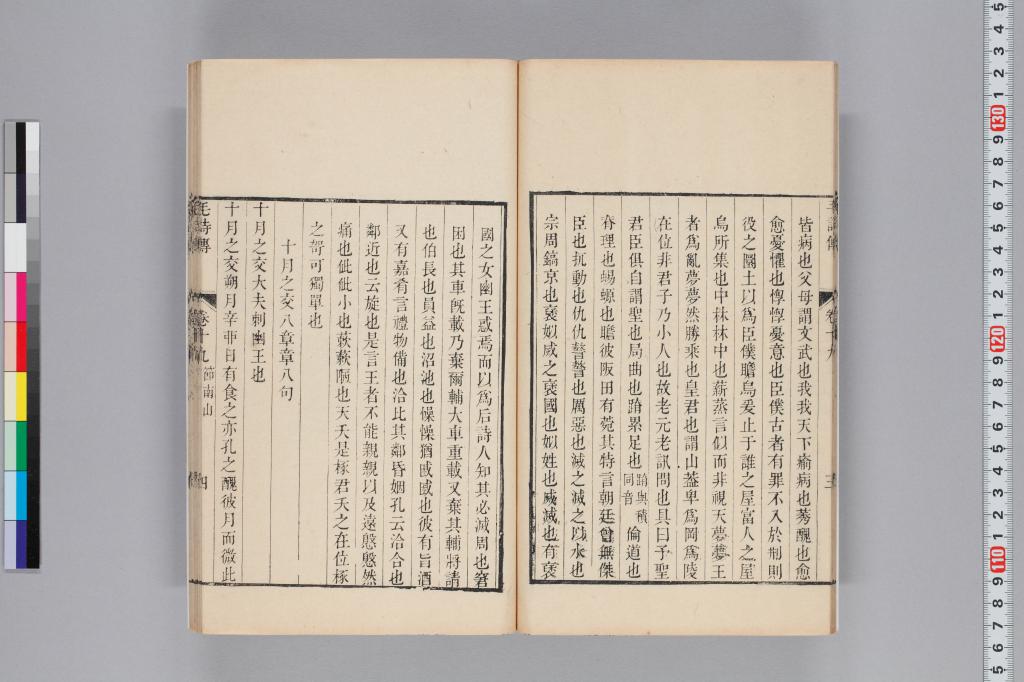 皆病也父母謂文武也我我天下瘉病也莠醜也愈
愈憂懼也惸惸憂意也臣僕古者有罪不入於刑則
役之圜土以爲臣僕瞻烏爰止于誰之屋富人之屋
烏所集也中林林中也薪蒸言似而非視天夢夢王
者爲亂夢夢然勝乘也皇君也謂山蓋卑爲岡爲陵
在位非君子乃小人也故老元老訊問也具曰予聖
君臣俱自謂聖也局曲也蹐累足也蹐與積同音倫道也
脊理也蜴螈也瞻彼阪田有菀其特言朝廷曾無傑
臣也扤動也仇仇謷謷也厲惡也滅之滅之以水也
宗周鎬京也襃姒烕之襃國也姒姓也烕滅也有襃
國之女幽王惑焉而以爲后詩人知其必滅周也窘
困也其車旣載乃棄爾輔大車重載又棄其輔將請
也伯長也員益也沼池也懆懆猶戚戚也彼有旨酒
又有嘉肴言禮物備也洽比其鄰昏姻孔云洽合也
鄰近也云旋也是言王者不能親親以及遠慇慇然
痛也佌佌小也蔌蔌陋也天夭是椓君夭之在位椓
之哿可獨單也
十月之交八章章八句
十月之交大夫刺幽王也
十月之交朔月辛丣日有食之亦孔之醜彼月而微此
毛詩傳
卷十九
節南山
四
卷十九
三